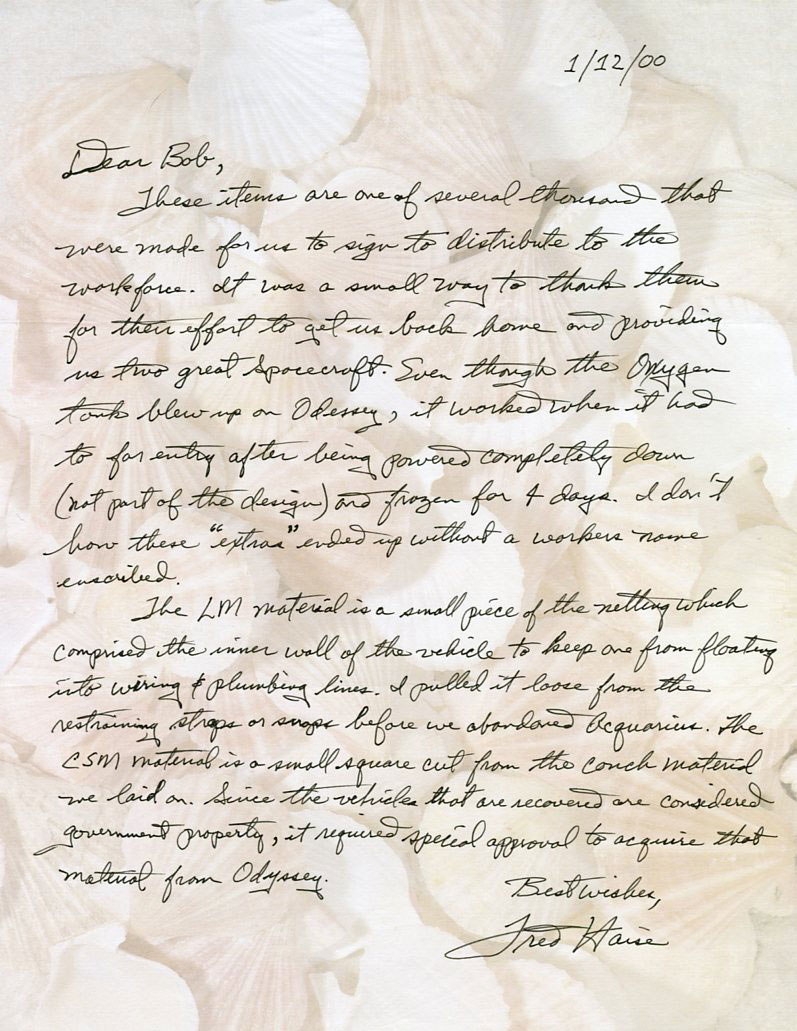 1/12/00
Dear Bob,
These items are one of several thousand that
were made for us to sign to distribute to the
workforce. It was a small way to thank them
for their effort to get us back home and providing
us two great Spacecraft. Even though the Oxygen
tank blew up on Odessey, it worked when it had
to for entry after being powered completely down
(not part of the design) and frozen for 4 days. I don't
how these "extras" ended up without a workers name
enscribed.
The LM material is a small piece of the netting which
comprised the inner wall of the vehicle to keep one from floating
into wiring & plumbing lines. I pulled it loose from the
restraining straps or snaps before we abandoned Acquarius. The
CSM material is a small square cut from the couch material
we laid on. Since the vehicles that are recovered are considered
government property, it required special approval to acquire that
material from Odyssey.
Best wishes,
Fred Haise